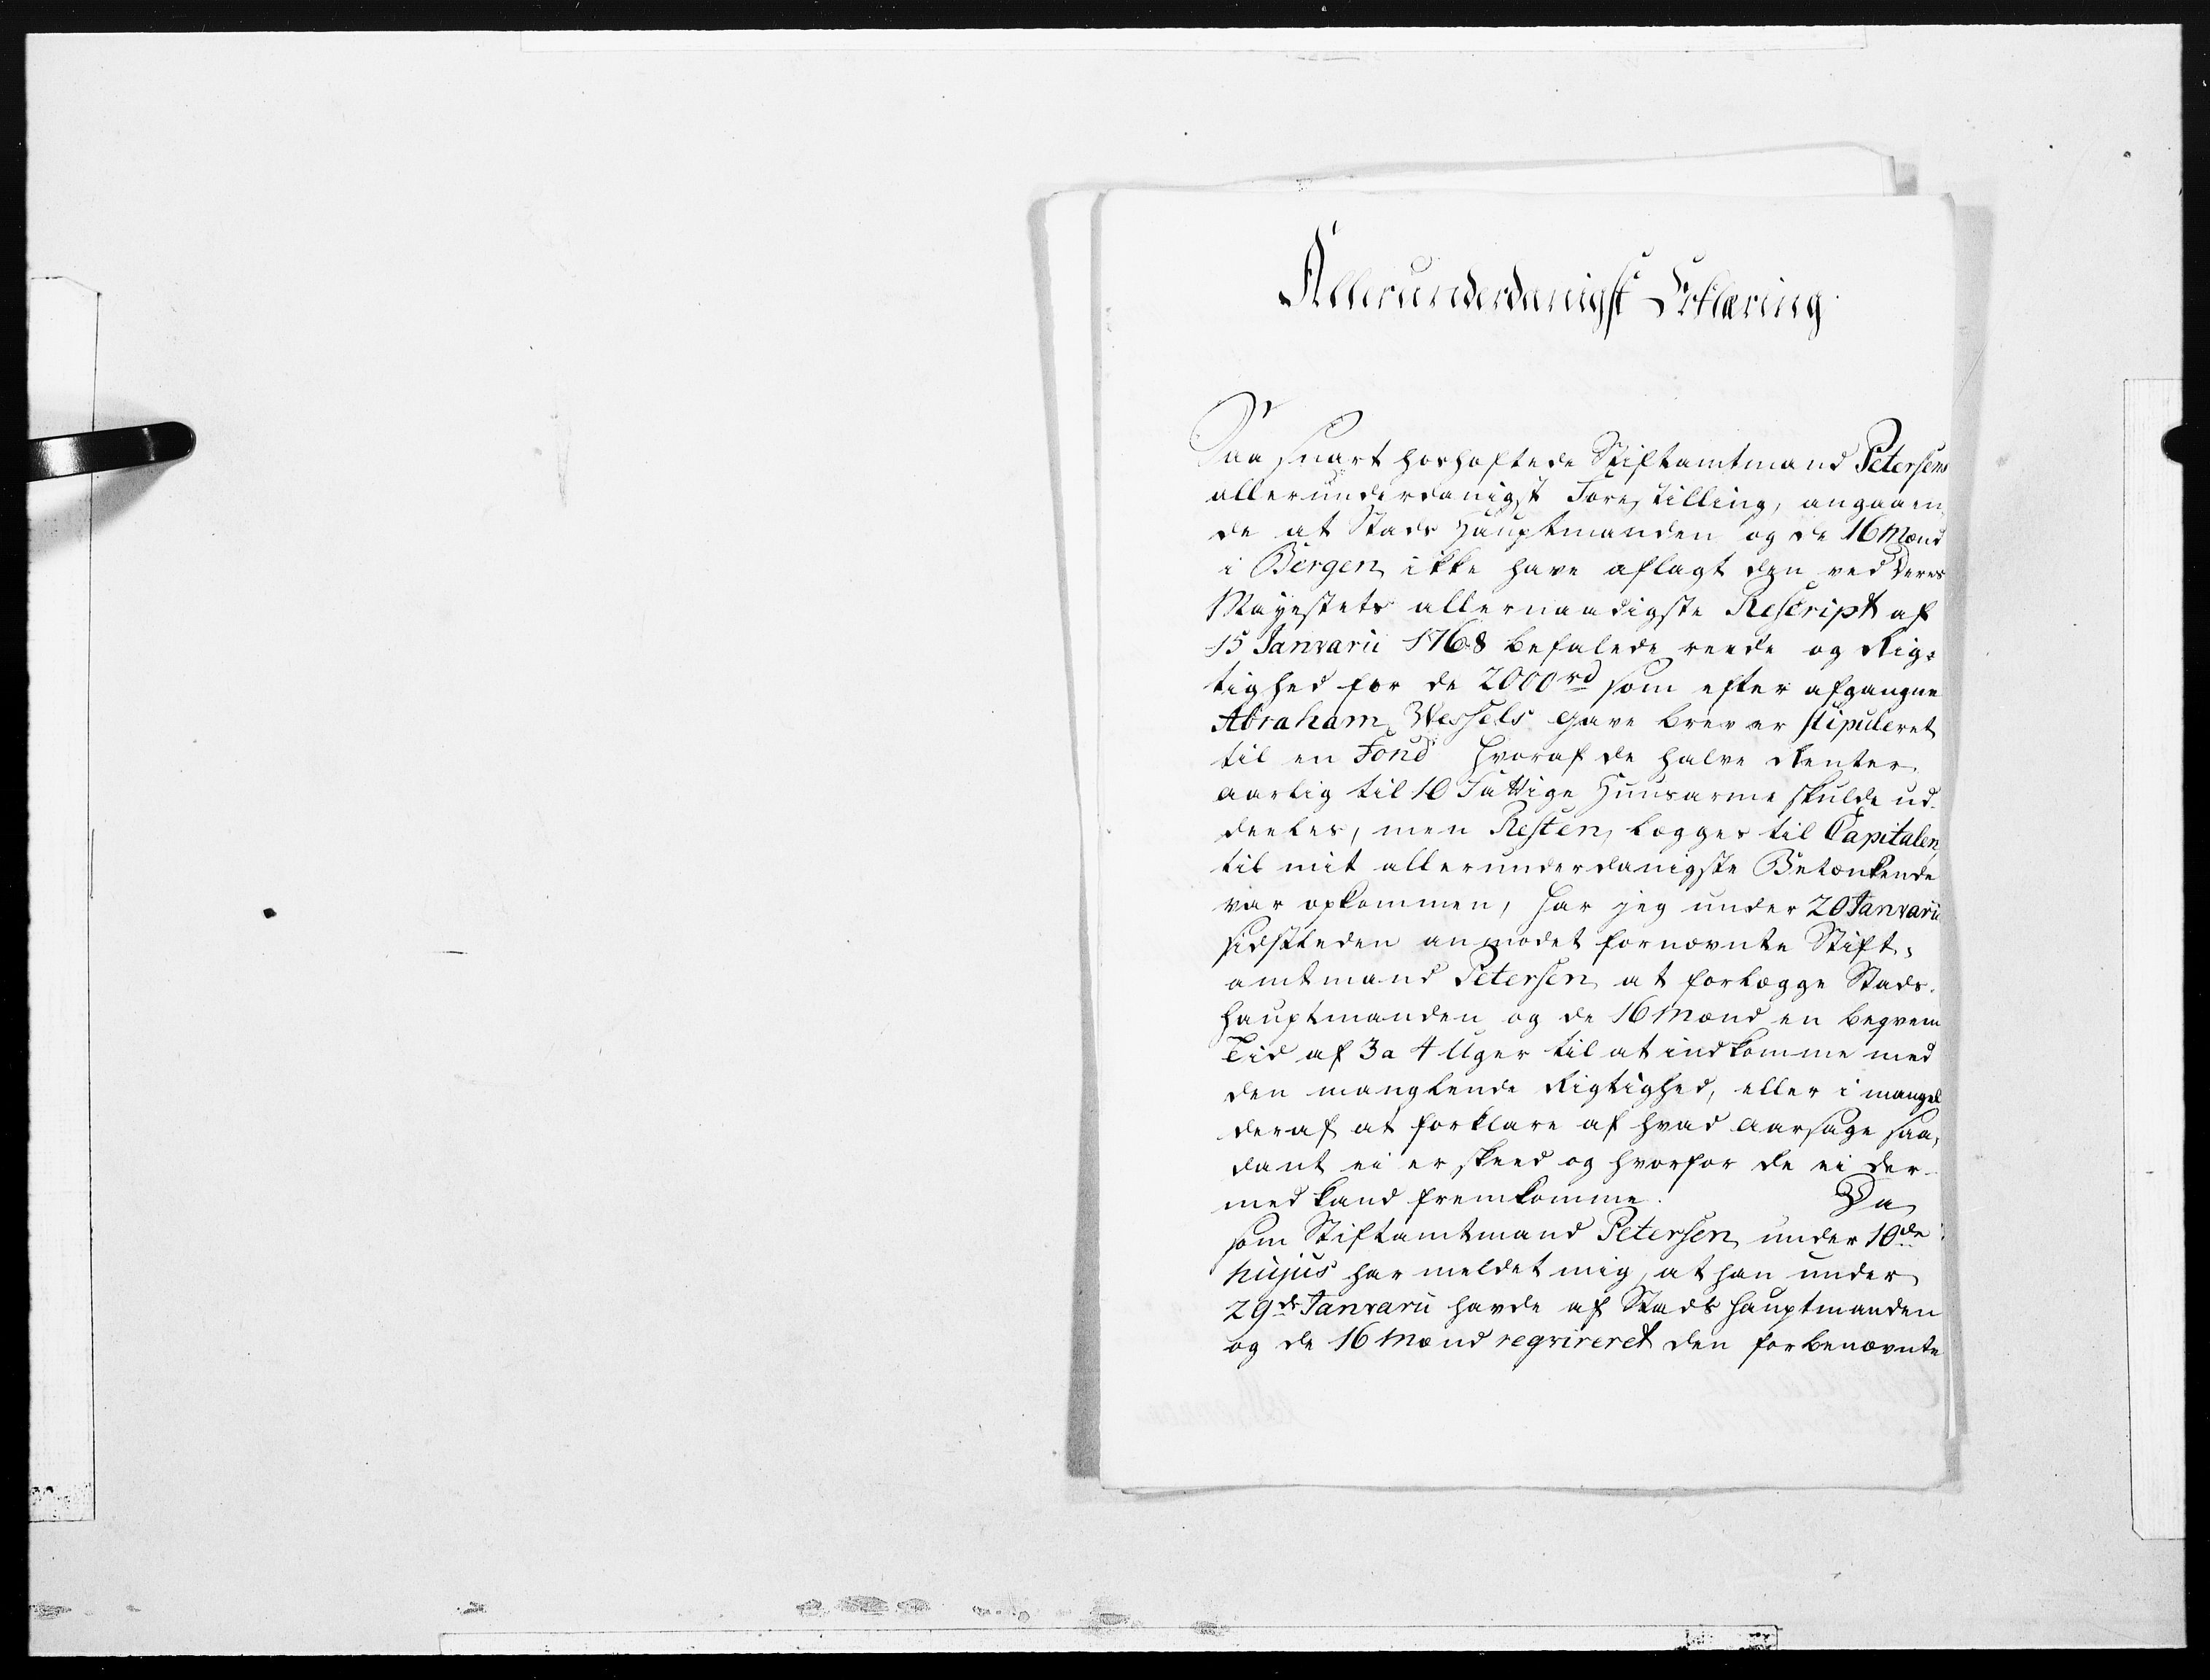 Allerunderdanigst Erklæring
Saa snart hoshæftede Stiftamtmand Petersens
allerunderdanigst Forestilling, angaaen
de at Stads Hauptmanden og de 16 Mænd
i Bergen ikke have aflagt den ved Deres
Mayestets allernaadigste Rescript af
15 Janvarii 1768 befalede reede og Rig-
tighed for de 2000 rd som efter afgangne
Abraham Wessels Gave brev er stipuleret
til en Fond hvoraf de halve Renter
aarlig til 10 Fattige Huusarme skulde ud-
deeles, men Resten lægges til Capitalen,
til mit allerunderdanigste Betænkende
var opkommen, har jeg under 20 Janvarii
sidstleden anmodet fornævnte Stift-
amtmand Petersen at forlægge Stads-
hauptmanden og de 16 Mænd en beqvem
Tid af 3 a 4 Uger til at indkomme med
den manglende Rigtighed, eller i mangel
deraf at forklare af hvad Aarsage saa-
dant ei er skeed og hvorfor de ei der-
med kand fremkomme. Da
som Stiftamtmand Petersen under 10de
hujus har meldet mig, at han under
29de Janvarii havde af Stads Hauptmanden
og de 16 Mænd reqvireret den forbenævnte